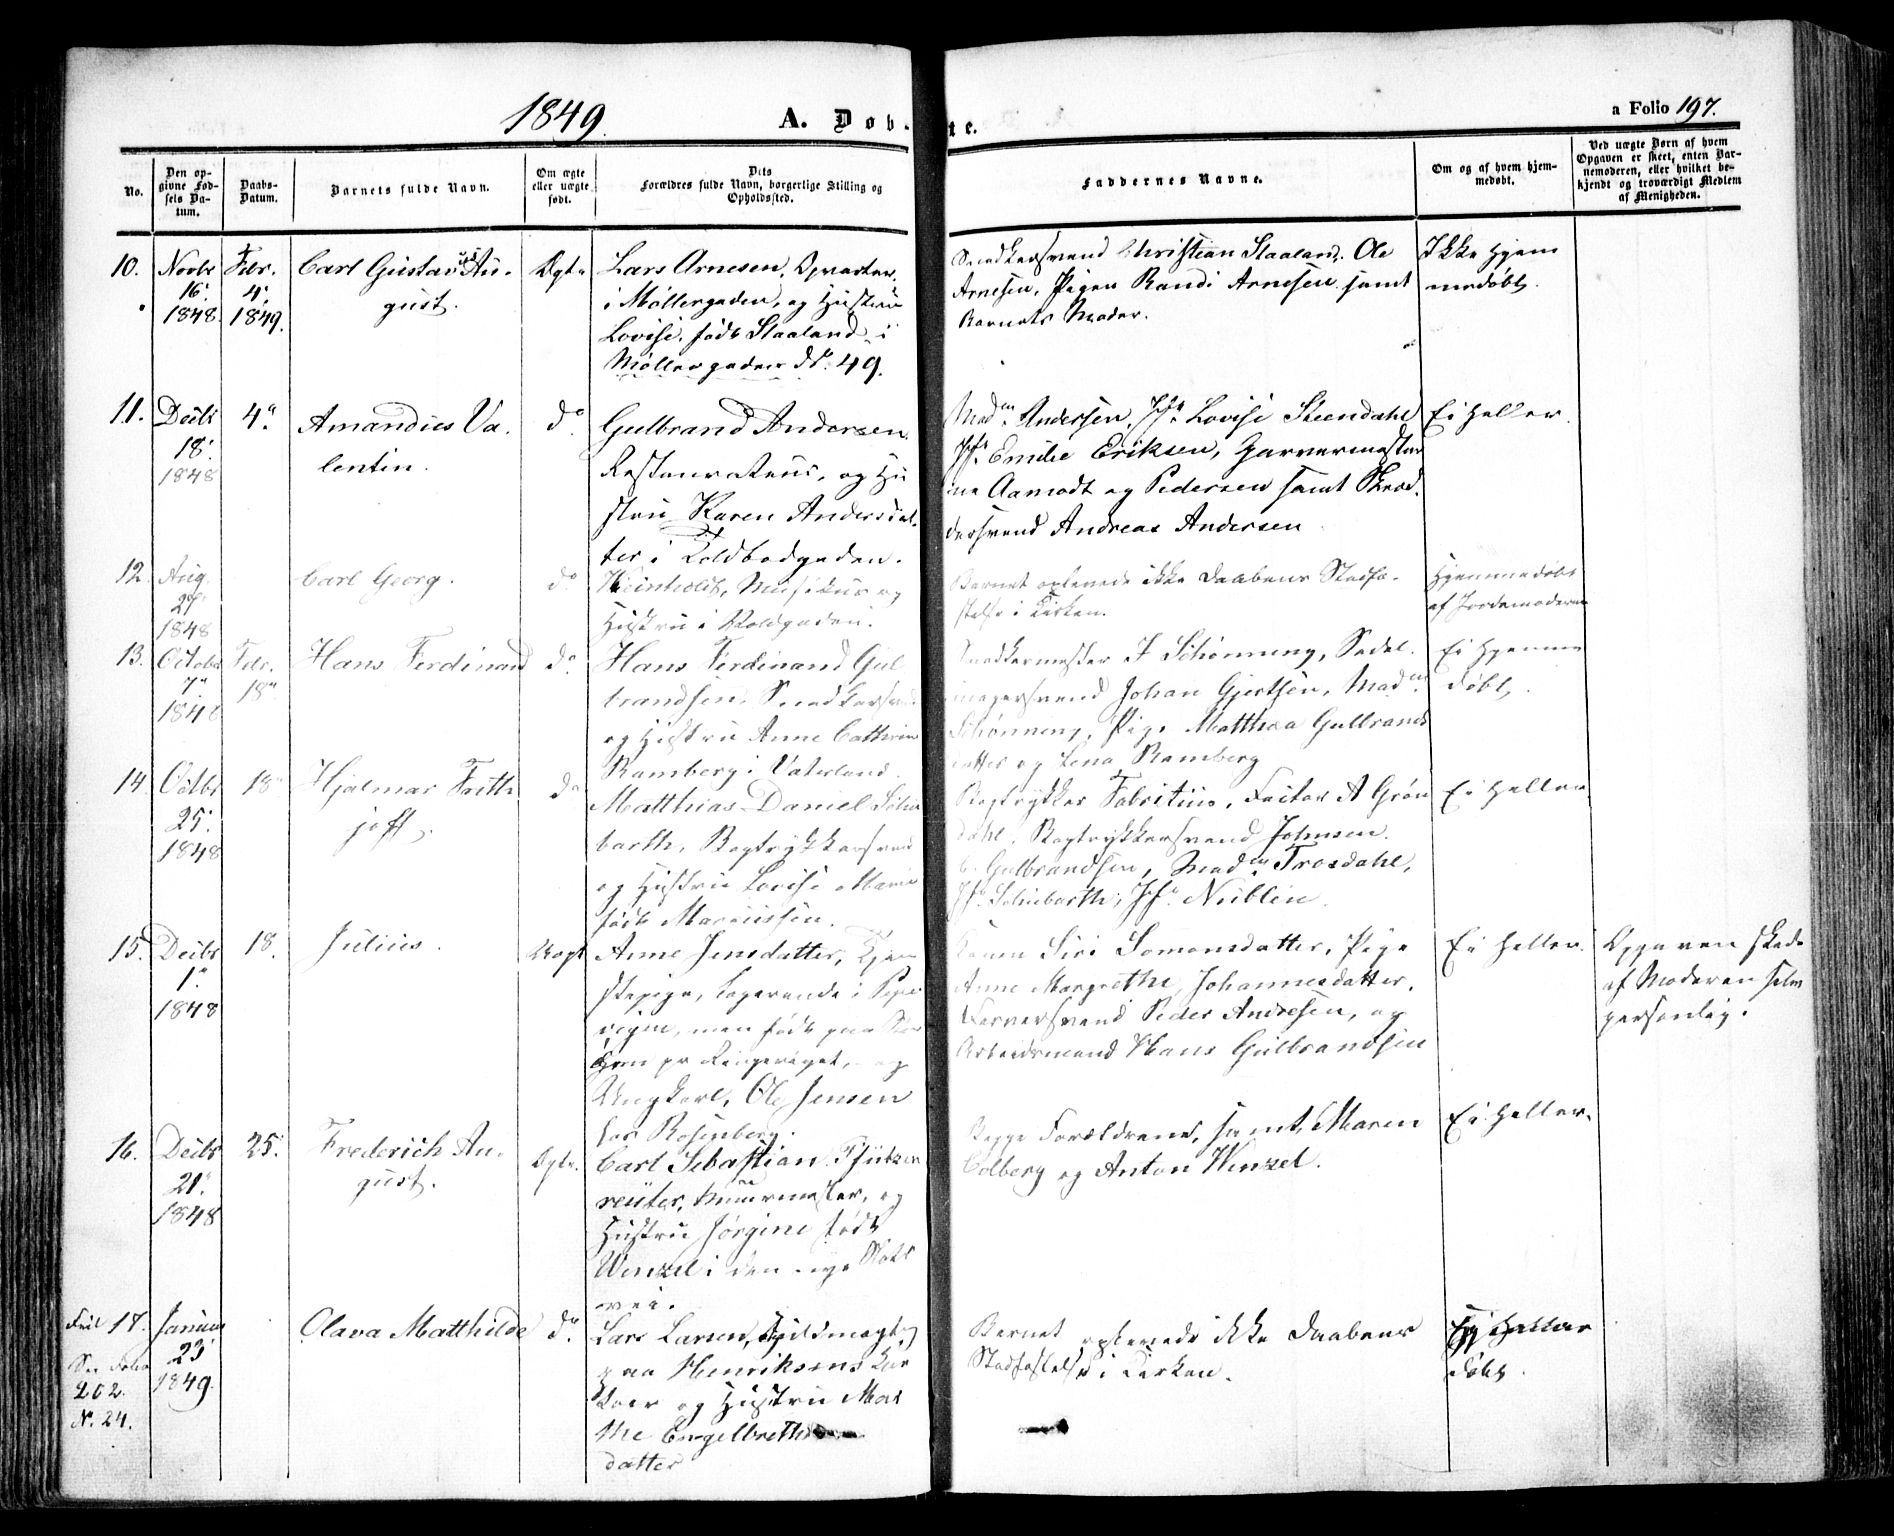 1849.
A. Døb-
te.
a Folio 197.
No.
Den op-
givne Fød-
sels Da-
tum.
Daabs-
Datum.
Barnets fulde Navn.
Om ægte
eller uægte
født.
Dets
Forældres fulde Navn, borgerlige Stilling og
Opholdssted.
Faddernes Navne.
Om og af hvem hjem-
medøbt.
Ved uægte Børn af hvem
Opgaven er skeet, enten Bar-
nemoderen, eller hvilket be-
kjendt og troværdigt Medlem
af Menigheden.
10.
Novbr
16.
1848.
Febr.
4.
1849.
Carl Gustav Au-
gust.
Ægte
Lars Arnesen, Opvarter
i Møllergaden, og Hustru
Lovise, født Staaland i
Møllergaden No. 49.
Snedkersvend Christian Staaland, Ole
Arnesen, Pigen Randi Arnesen samt
Barnets Moder.
Ikke hjem
medøbt.
11.
Decbr
18.
1848
4.
Amandus Va-
lentin.
do
Gulbrand Andersen,
Restaurateur, og Hu
stru Karen Andersdat-
ter i Toldbodgaden.
Madm. Andersen, Jfr. Lovise Steendahl
Jfr. Emilie Eriksen, Garvermester
ne Aamodt og Pedersen samt Skræd-
dersvend Andreas Andersen
Ei heller.
12.
Aug.
27
1848
Carl Georg.
do
Musikus og
Hustru i Voldgaden.
Barnet oplevede ikke Daabens Stadfæ-
stelse i Kirken.
Hjemmedøbt
af Jordemoderen
13.
Octobr
7
1848
Febr.
18
Hans Ferdinand
do
Hans Ferdinand Gul
brandsen, Snedkersvend
og Hustru Anne Cathrine
Ramberg i Vaterland.
Snedkermester J Schønning, Sadel-
magersvend Johan Gjertsen, Madm.
Schønning, Pige Matthea Gulbrands
datter og Lena Ramberg
Ei hjemme
døbt.
14
Octbr
25.
1848
18
Hjalmar Frith
joff.
do
Matthias Daniel Schu
barth, Bogtrykkersvend
og Hustru Lovise Marie
født Marcussen.
Bogtrykker Fabritius, Factor A Grøn
dahl, Bogtrykkersvend Johnsen
C. Gulbrandsen, Madm. Trosdahl,
Jfr. Schubarth, Jfr. Nublin.
Ei heller
15.
Decbr
1.
1848
18.
Julius.
Uægt
Anne Jensdatter, Tjene
stepige, logerende i Peper
vigen, men født paa
pr Ringeriget, og
Ungkarl, Ole Jensen
hos Rosenberg.
Konen Siri Somonsdatter, Pige
Anne Margrethe Johannesdatter,
Farversvend Peder Andresen, og
Arbeidsmand Hans Gulbrandsen
Ei heller.
Opgaven skede
af Moderen selv
personlig.
16.
Decbr
21.
1848
25.
Frederich Au-
gust.
Ægte.
Carl Sebastian
Muurmester, og
Hustru Jørgine født
Wenzel i den nye Slots
vei.
Begge Forældrene, samt Maren
Colberg og Anton Wenzel.
Ei heller.
Feil 17.
See Folio
202.
N. 24.
Januar
23
1849.
Olava Matthilde
do.
Lars Larsen,
paa Henriksens
og Hustru Mar
the Engelbretts
datter
Barnet oplevede ikke Daabens
Stadfæstelse i Kirken.
døbt